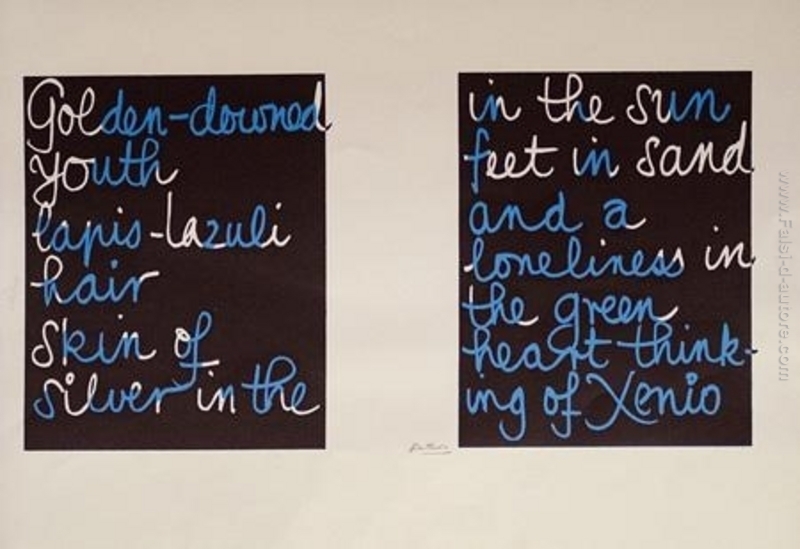 Golden-downed
youth
lapis-lazuli
hair
skin of
silver in the
in the sun
feet in sand
and a
loneliness in
the green
heart think-
ing of Xenio
www.Falsi-d-autore.com